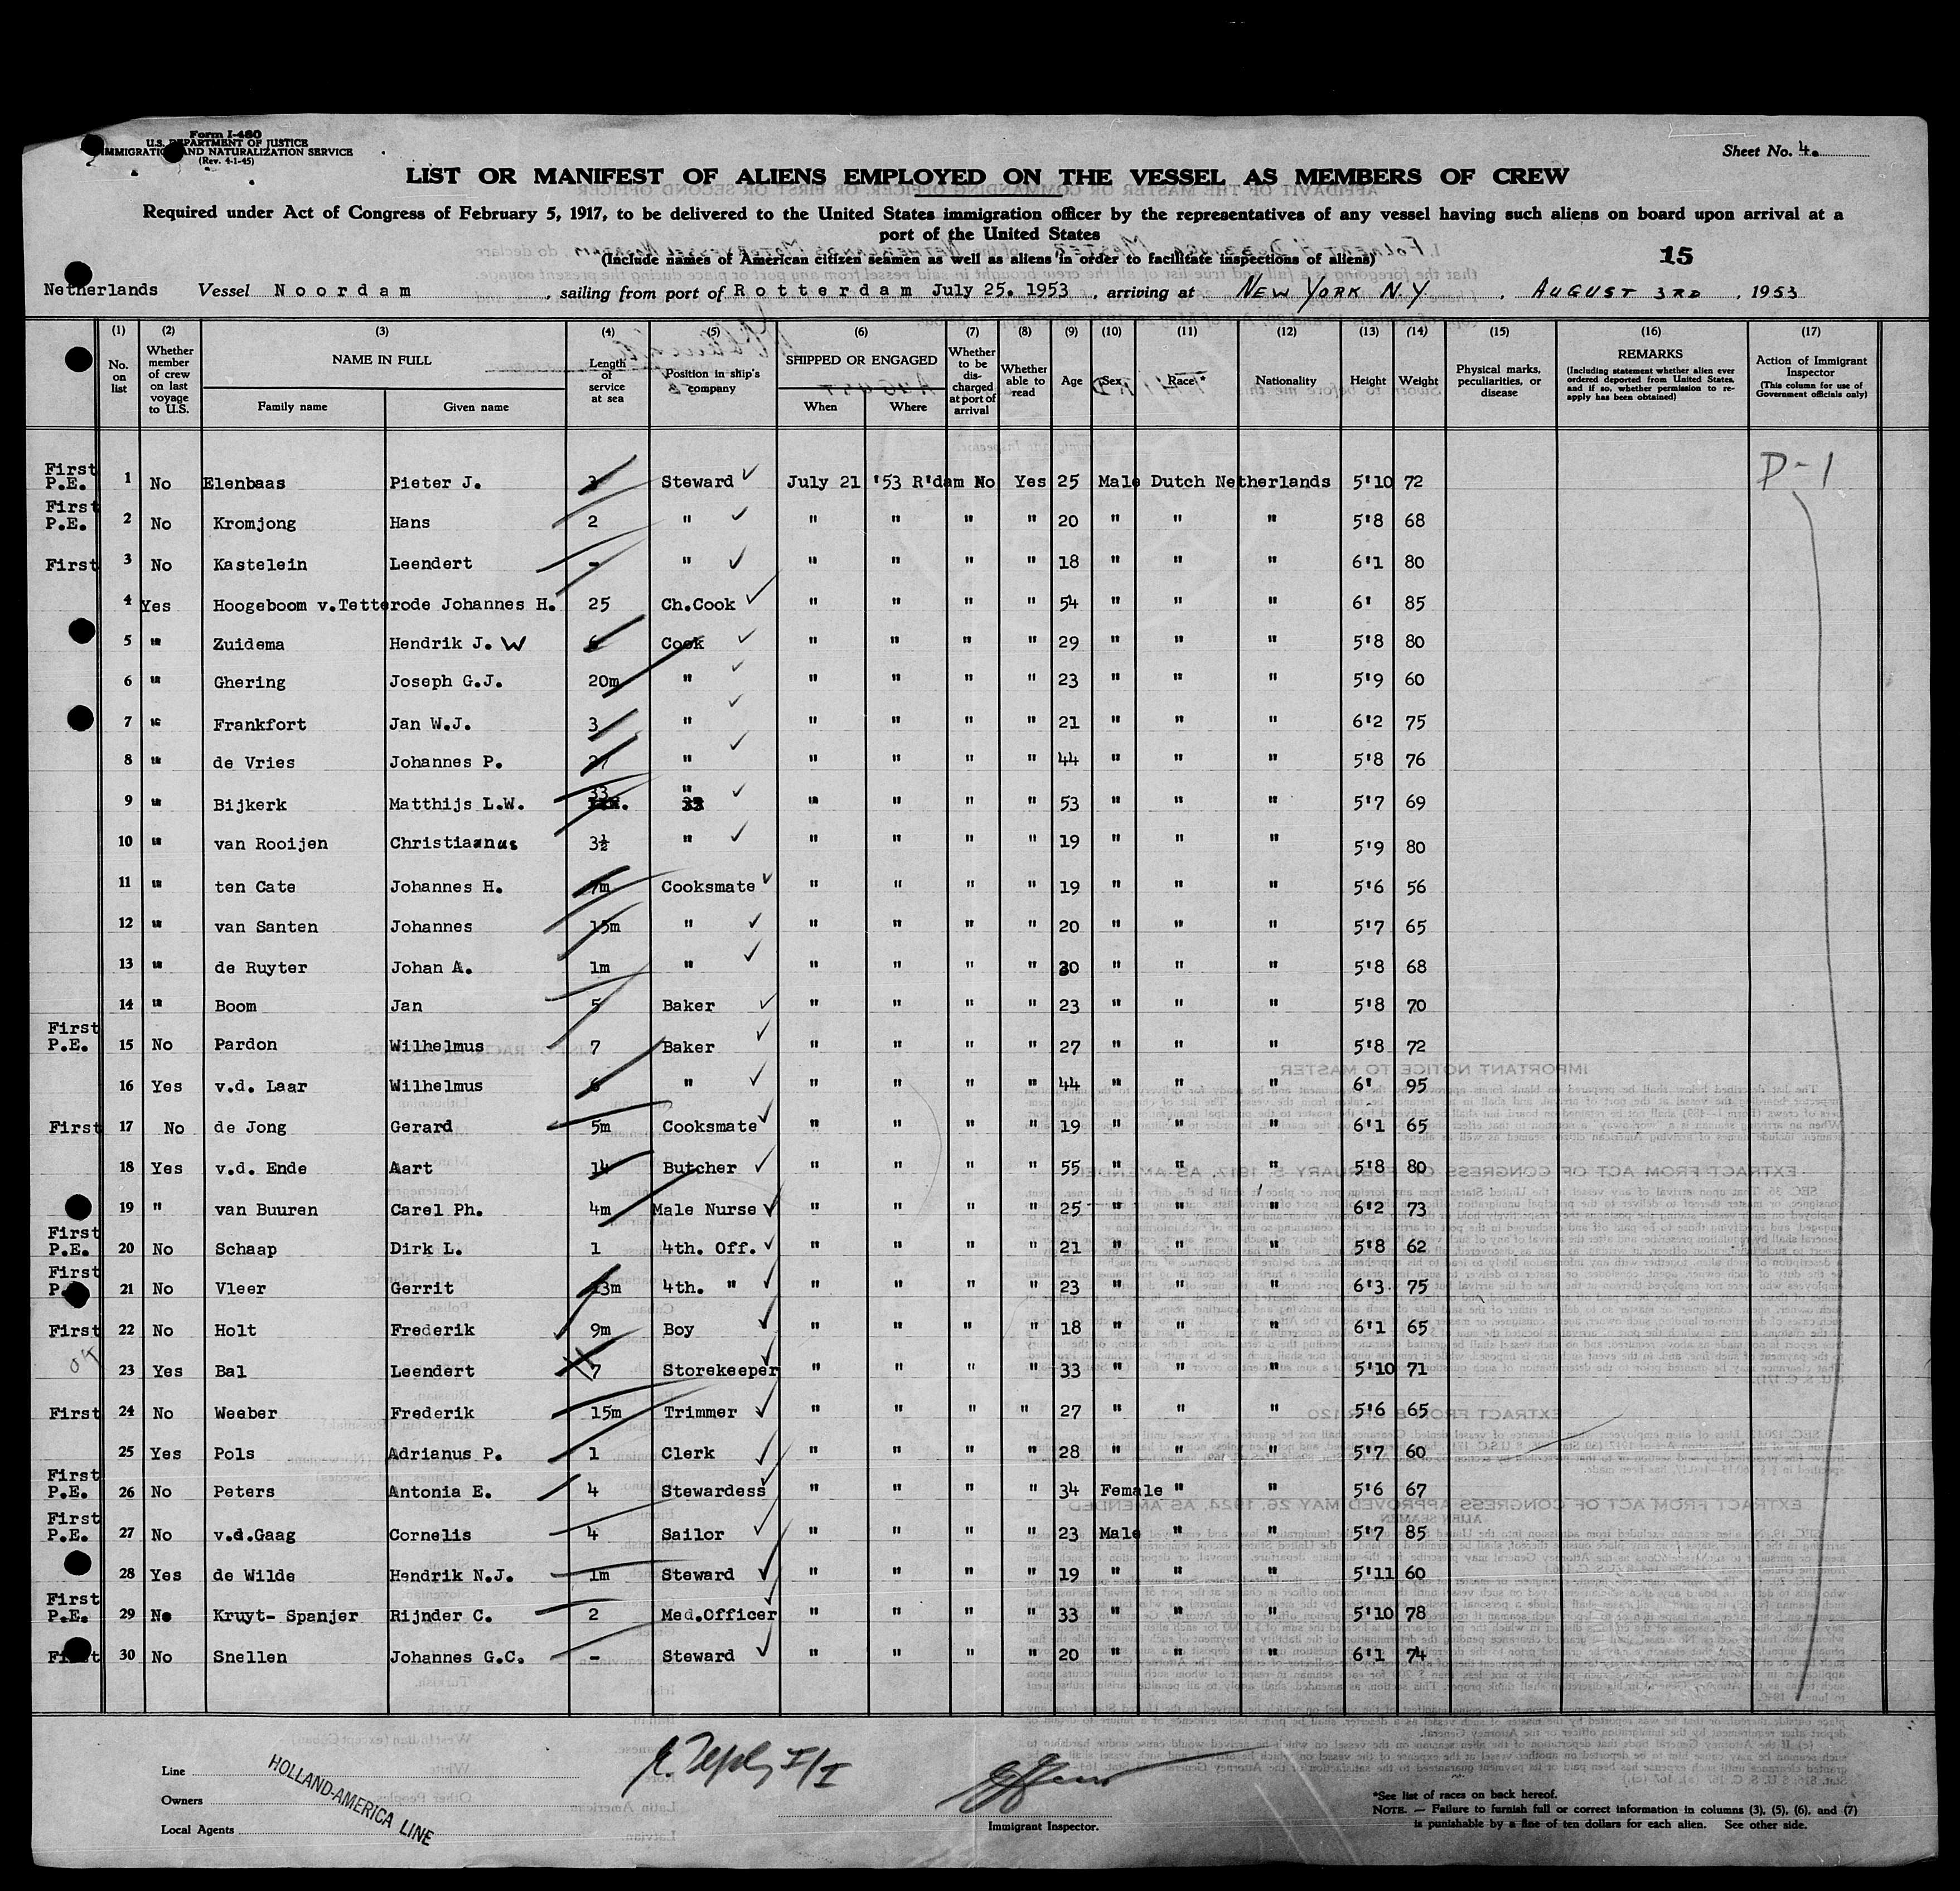 Form I-480
U.S. DEPARTMENT OF JUSTICE
IMMIGRATION AND NATURALIZATION SERVICE
(Rev. 4-1-45)
Sheet No. 4.
LIST OR MANIFEST OF ALIENS EMPLOYED ON THE VESSEL AS MEMBERS OF CREW
Required under Act of Congress of February 5, 1917, to be delivered to the United States immigration officer by the representatives of any vessel having such aliens on board upon arrival at a
port of the United States
(Include names of American citizen seamen as well as aliens in order to facilitate inspections of aliens)
15
Netherlands Vessel Noordam, sailing from port of Rotterdam July 25. 1953, arriving at NEW YORK N.Y., AUGUST 3RD, 1953
(1) (2) (3) (4) (5) (6) (7) (8) (9) (10) (11) (12) (13) (14) (15) (16) (17)
No. on list
Whether member of crew on last voyage to U.S.
NAME IN FULL
Family name Given name
Length of service at sea
Position in ship's company
SHIPPED OR ENGAGED
When Where
Whether to be discharged at port of arrival
Whether able to read
Age Sex Race* Nationality Height Weight
Physical marks, peculiarities, or disease
REMARKS
(Including statement whether alien ever ordered deported from United States, and if so, whether permission to reapply has been obtained)
Action of Immigrant Inspector
(This column for use of Government officials only)
First P.E. 1 No Elenbaas Pieter J. Steward ✓ July 21 '53 R'dam No Yes 25 Male Dutch Netherlands 5'10 72 D-1
First P.E. 2 No Kromjong Hans 2 " ✓ " " " " 20 " " " 5'8 68
First 3 No Kastelein Leendert - " ✓ " " " " 18 " " " 6'1 80
4 Yes Hoogeboom v.Tetterode Johannes H. 25 Ch.Cook ✓ " " " " 54 " " " 6' 85
5 " Zuidema Hendrik J. W Cook ✓ " " " " 29 " " " 5'8 80
6 " Ghering Joseph G.J. 20m " ✓ " " " " 23 " " " 5'9 60
7 " Frankfort Jan W.J. 3 " ✓ " " " " 21 " " " 6'2 75
8 " de Vries Johannes P. 27 " ✓ " " " " 44 " " " 5'8 76
9 " Bijkerk Matthijs L.W. 33 " ✓ " " " " 53 " " " 5'7 69
10 " van Rooijen Christianus 3½ " ✓ " " " " 19 " " " 5'9 80
11 " ten Cate Johannes H. 7m Cooksmate ✓ " " " " 19 " " " 5'6 56
12 " van Santen Johannes 15m " ✓ " " " " 20 " " " 5'7 65
13 " de Ruyter Johan A. 1m " ✓ " " " " " " " 5'8 68
14 " Boom Jan 5 Baker ✓ " " " " 23 " " " 5'8 70
First P.E. 15 No Pardon Wilhelmus 7 Baker ✓ " " " " 27 " " " 5'8 72
16 Yes v.d. Laar Wilhelmus 6 " ✓ " " " " 44 " " " 6' 95
First 17 No de Jong Gerard 5m Cooksmate ✓ " " " " 19 " " " 6'1 65
18 Yes v.d. Ende Aart 14 Butcher ✓ " " " " 55 " " " 5'8 80
19 " van Buuren Carel Ph. 4m Male Nurse ✓ " " " " 25 " " " 6'2 73
First P.E. 20 No Schaap Dirk L. 1 4th. Off. ✓ " " " " 21 " " " 5'8 62
First P. 21 No Vleer Gerrit 4th. " ✓ " " " " 23 " " " 6'3 75
First 22 No Holt Frederik 9m Boy ✓ " " " " 18 " " " 6'1 65
OK 23 Yes Bal Leendert 7 Storekeeper ✓ " " " " 33 " " " 5'10 71
First 24 No Weeber Frederik 15m Trimmer ✓ " " " " 27 " " " 5'6 65
25 Yes Pols Adrianus P. 1 Clerk ✓ " " " " 28 " " " 5'7 60
First P.E. 26 No Peters Antonia E. 4 Stewardess ✓ " " " " 34 Female " " 5'6 67
First P.E. 27 No v.d.Gaag Cornelis 4 Sailor ✓ " " " " 23 Male " " 5'7 85
28 Yes de Wilde Hendrik N.J. 1m Steward ✓ " " " " 19 " " " 5'11 60
First P.E. 29 No Kruyt- Spanjer Rijnder C. 2 Med.Officer ✓ " " " " 33 " " " 5'10 78
First 30 No Snellen Johannes G.C. - Steward ✓ " " " " 20 " " " 6'1 74
Line
Owners
Local Agents
HOLLAND-AMERICA LINE
Immigrant Inspector.
*See list of races on back hereof.
NOTE. — Failure to furnish full or correct information in columns (3), (5), (6), and (7)
is punishable by a fine of ten dollars for each alien. See other side.